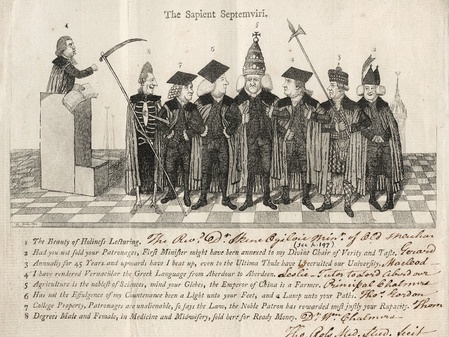 The Sapient Septemviri.
1 The Beauty of Holiness Lecturing. The Revd. Dr. Skene Ogilvie Minr. of Old Machar
2 Had you not sold your Patronages, First Minister might have been annexed to my Divine Chair of Verity and Taste. Gerard
(See A-197)
3 Annually for 45 Years and upwards have I beat up, even to the Ultima Thule have I recruited our University. Macleod
4 I have rendered Vernacular the Greek Language from Aberdeen to Aberdeen. Leslie - Tutor to Lord Aberdour
5 Agriculture is the noblest of Sciences, mind your Glebes, the Emperor of China is a Farmer. Principal Chalmers
6 Has not the Effulgence of my Countenance been a Light unto your Feet, and a Lamp unto your Path. Thos. Gordon
7 College Property, Patronages are unalienable, so says the Law, the Noble Patron has rewarded most justly your Rapacity. Thom
8 Degrees Male and Female, in Medicine and Midwifery, sold here for Ready Money. Dr. Wm. Chalmers